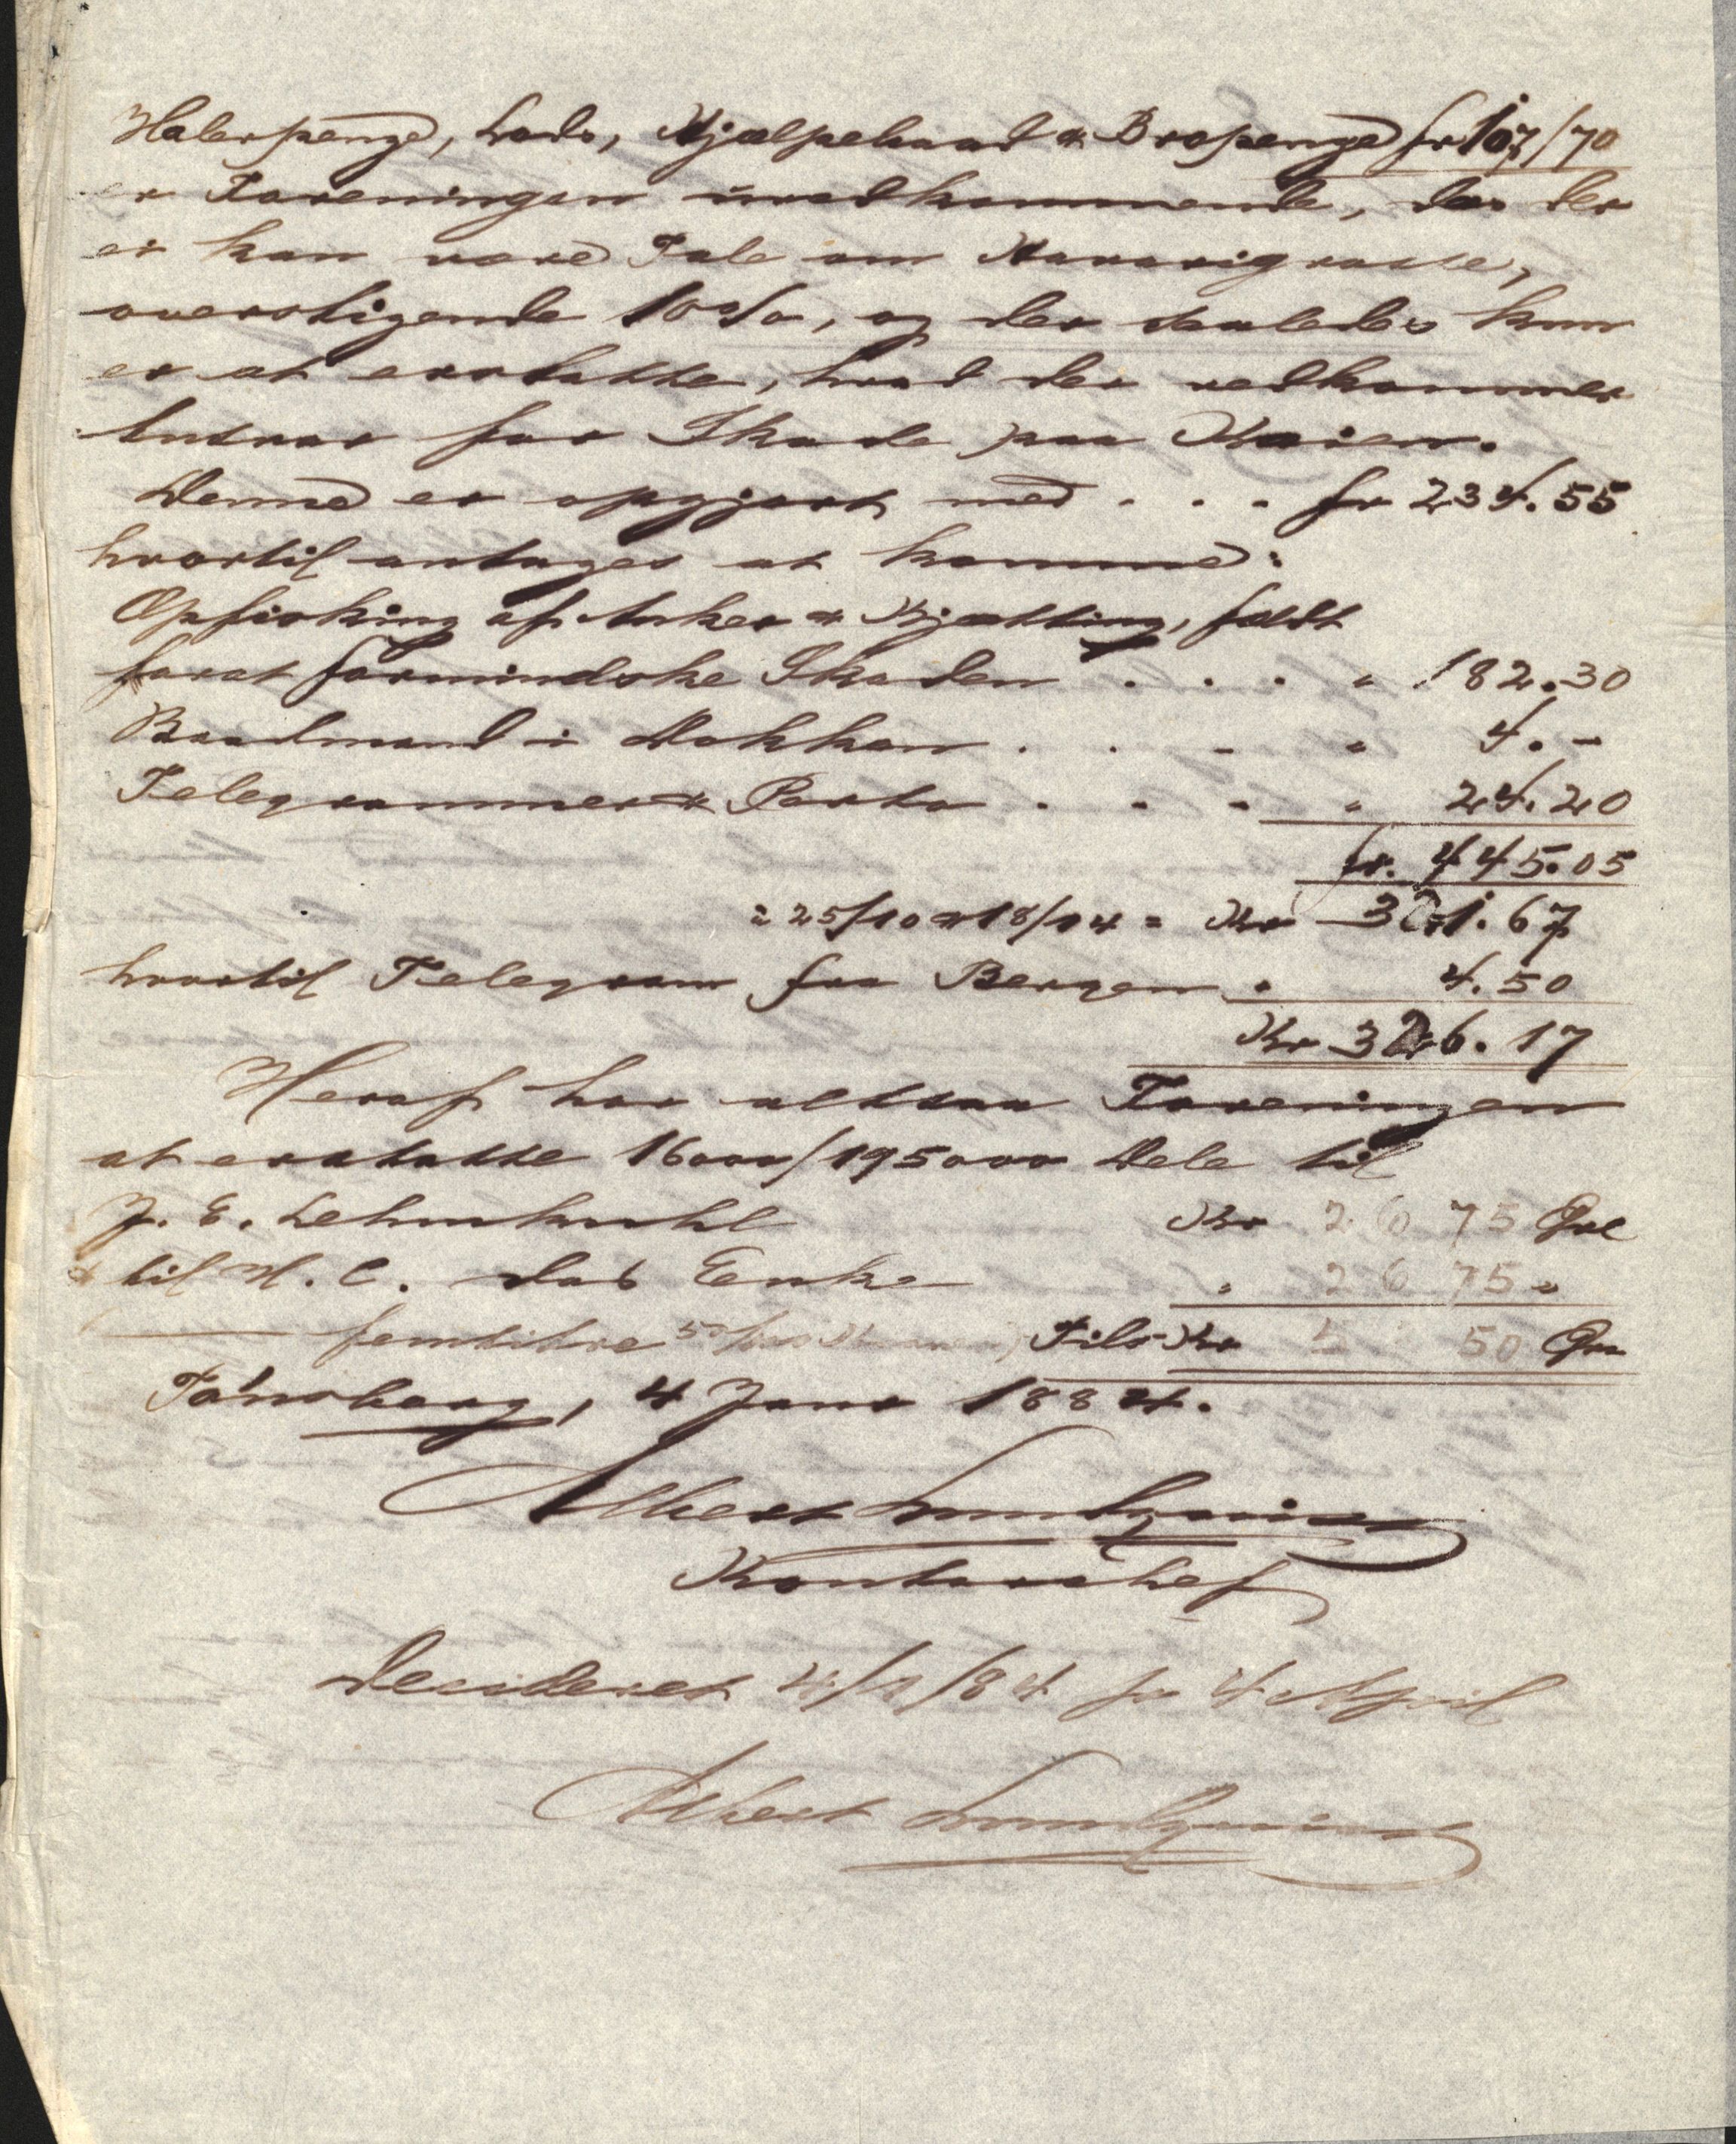 Halerpenge, Lods, Hjælpebaad & Bropenge fr 107/70
er Foreningen uvedkommende, da der
ei kan være Tale om Havarigrosse,
overstigende 10%, og der saaledes kun
er at erstatte, hvad der vedkommer
Ansvar for Skade paa Kaien.
Denne er opgjort med . . . fr 234.55
hvortil antages at komme:
Opfisking af Anker & Kjætting, fældt
forat formindske Skaden . . . " 182.30
Baadmand i Dokken . . - " 4. -
Telegrammer & Porto . - - " 24.20
fr. 445.05
à 25/10 & 18/04 = Kr 321.67
hvortil Telegram fra Bergen " 4.50
Kr 326.17
Heraf har altsaa Foreningen
at erstatte 16000/195000 Dele til
J. E. Lehmkuhl Kr 26 75 Øre
& til H. C. Enke " 26 75 "
femtitre 50/100 Kroner, Tils. Kr 50 Øre
Tønsberg, 4 Juni 1884.
Albert
Kontorchef
Decideret /84 fr 4 April
Albert